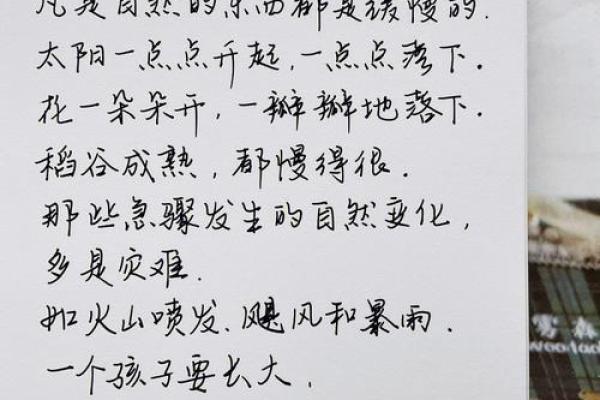 凡是自然的东西都是缓慢的.
太阳一点点升起,一点点落下.
花一朵朵开,一瓣瓣地落下.
稻谷成熟,都慢得很.
那些急骤发生的自然变化,
多是灾难.
如火山喷发、飓风和暴雨.
一个孩子要长大,